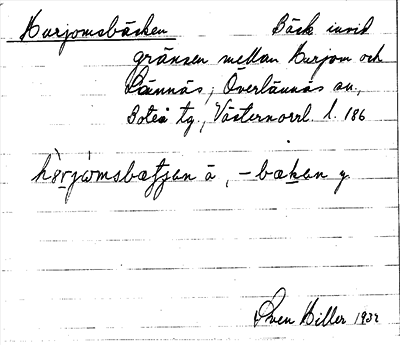 Hurjomsbäcken Bäck invid
gränsen mellan Hurjom och
Lännäs, Överlännäs sn.,
Boteå tg., Västernorrl. l. 186
-bækan y
Sven Hiller 1932